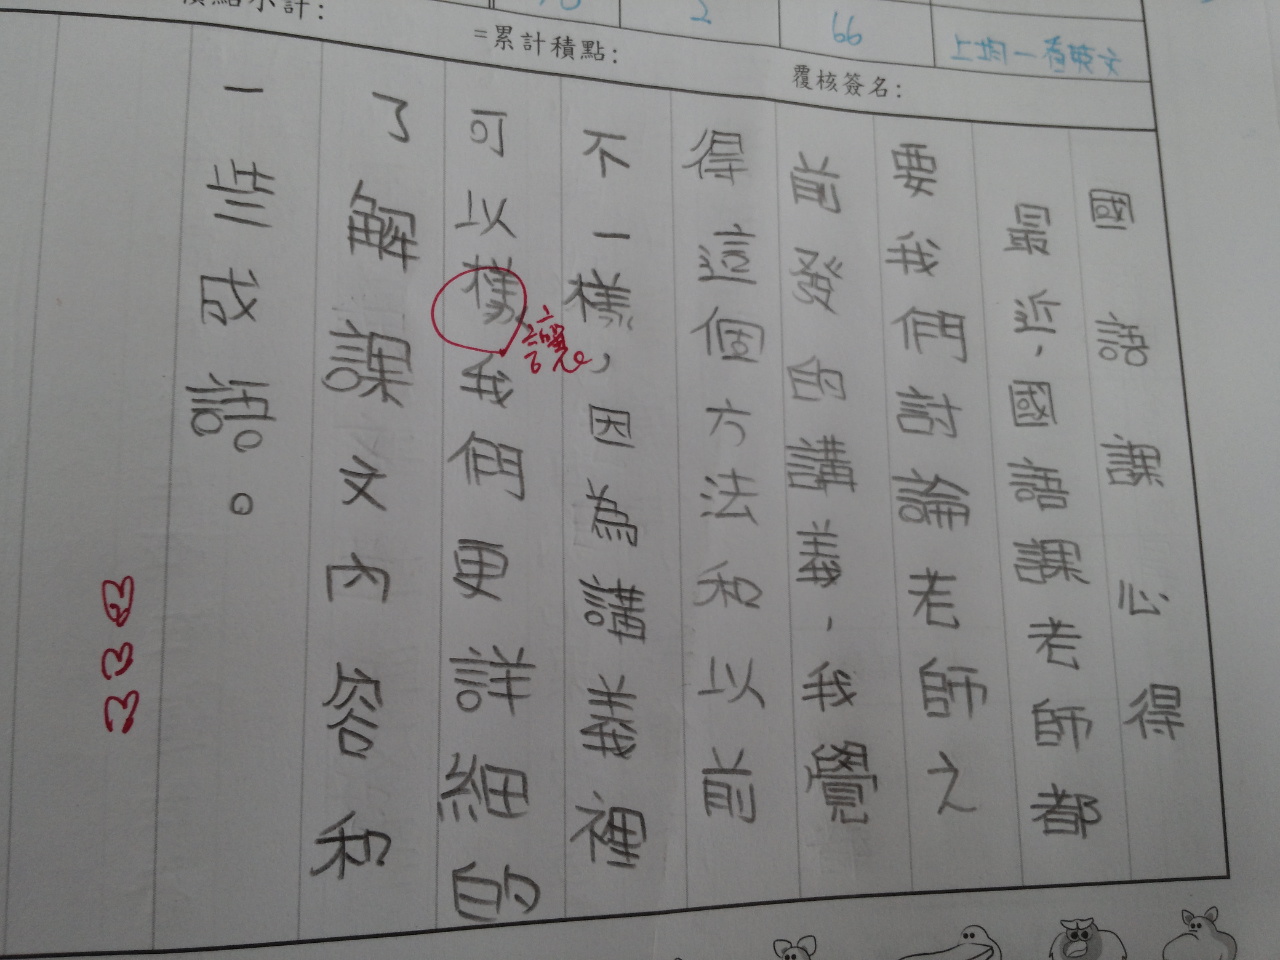 =累計積點:
覆核簽名:
2
66
國語課心得
最近,國語課老師都
要我們討論老師之
前發的講義,我覺
得這個方法和以前
不一樣,因為講義裡
可以樣我們更詳細的
讓
了解課文內容和
一些成語。